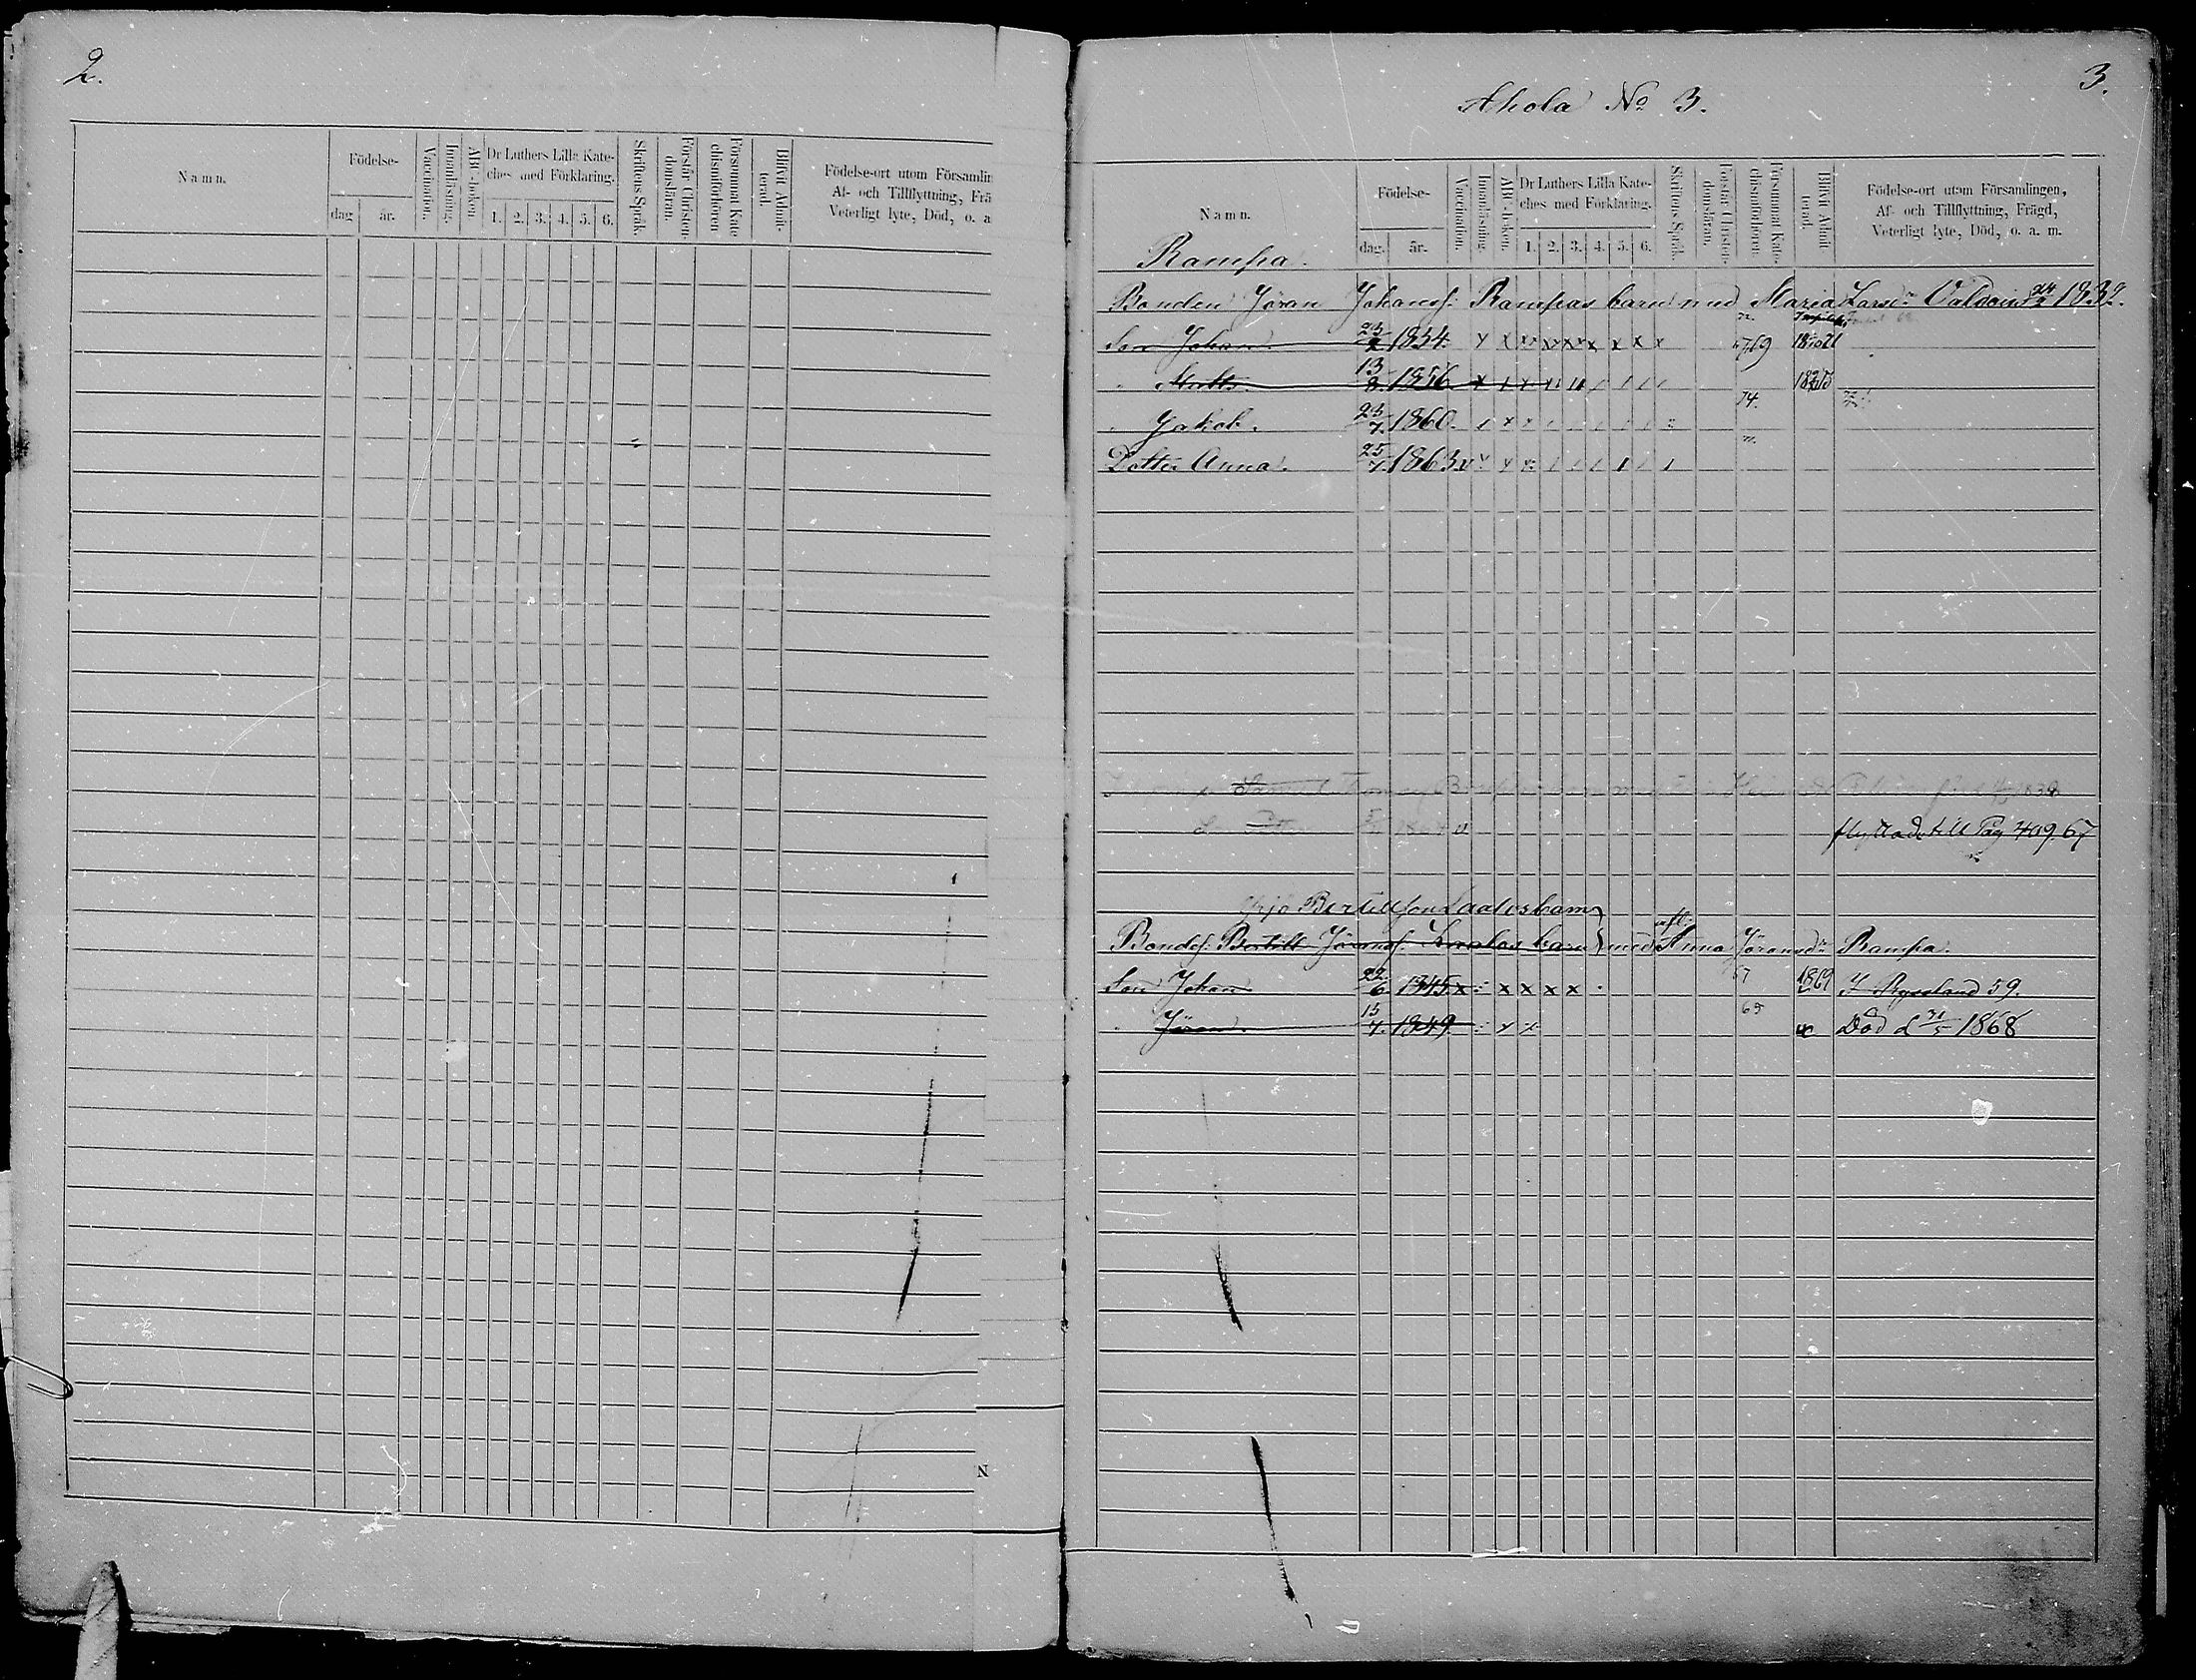 2.
Namn.
Födelse-
dag
år.
Vaccination.
Innanläsning.
ABC-boken
Dr Luthers Lilla Kate-
ches med Förklaring.
1. 2. 3. 4. 5. 6.
Skriftens Språk.
Förstår Christen-
domsläran.
Försummat Kate
chismiförhören
Blifvit Admit-
terad.
Födelse-ort utom Församlin
Af- och Tillflyttning, Frä
Veterligt lyte, Död, o. a
N
3.
Ahola No 3.
Namn.
Födelse-
dag.
år.
Vaccination.
Innanläsning
ABC-boken.
Dr Luthers Lilla Kate-
ches med Förklaring.
1. 2. 3. 4. 5. 6.
Skriftens Språk.
Förstår Christen-
domsläran.
Försummat Kate-
chismiförhören.
Blifvit Admit-
terad.
Födelse-ort utom Församlingen,
Af- och Tillflyttning, Frägd,
Veterligt lyte, Död, o. a. m.
Rampa.
Bonden Jöran Johanss: Rampas barn med Maria Larsdr 1832.
Son Johan. 23 1854. 69
" Matts. 13/8. 1856.
74.
" Jakob. 23/7. 1860.
Dotter Anna. 25/7. 1863.
1838
flyttade till Pag 409. 67
Yrjö Bertillson Laalos barn
Bondes: Bertill Jöranss: Laalos barn med Anna Jöransdr Rampa.
Son Johan. 22/6. 1845. x x x x x 67 1869 I Ryssland 59.
" Jöran. 15/7. 1849. 65 Död d 31/5 1868